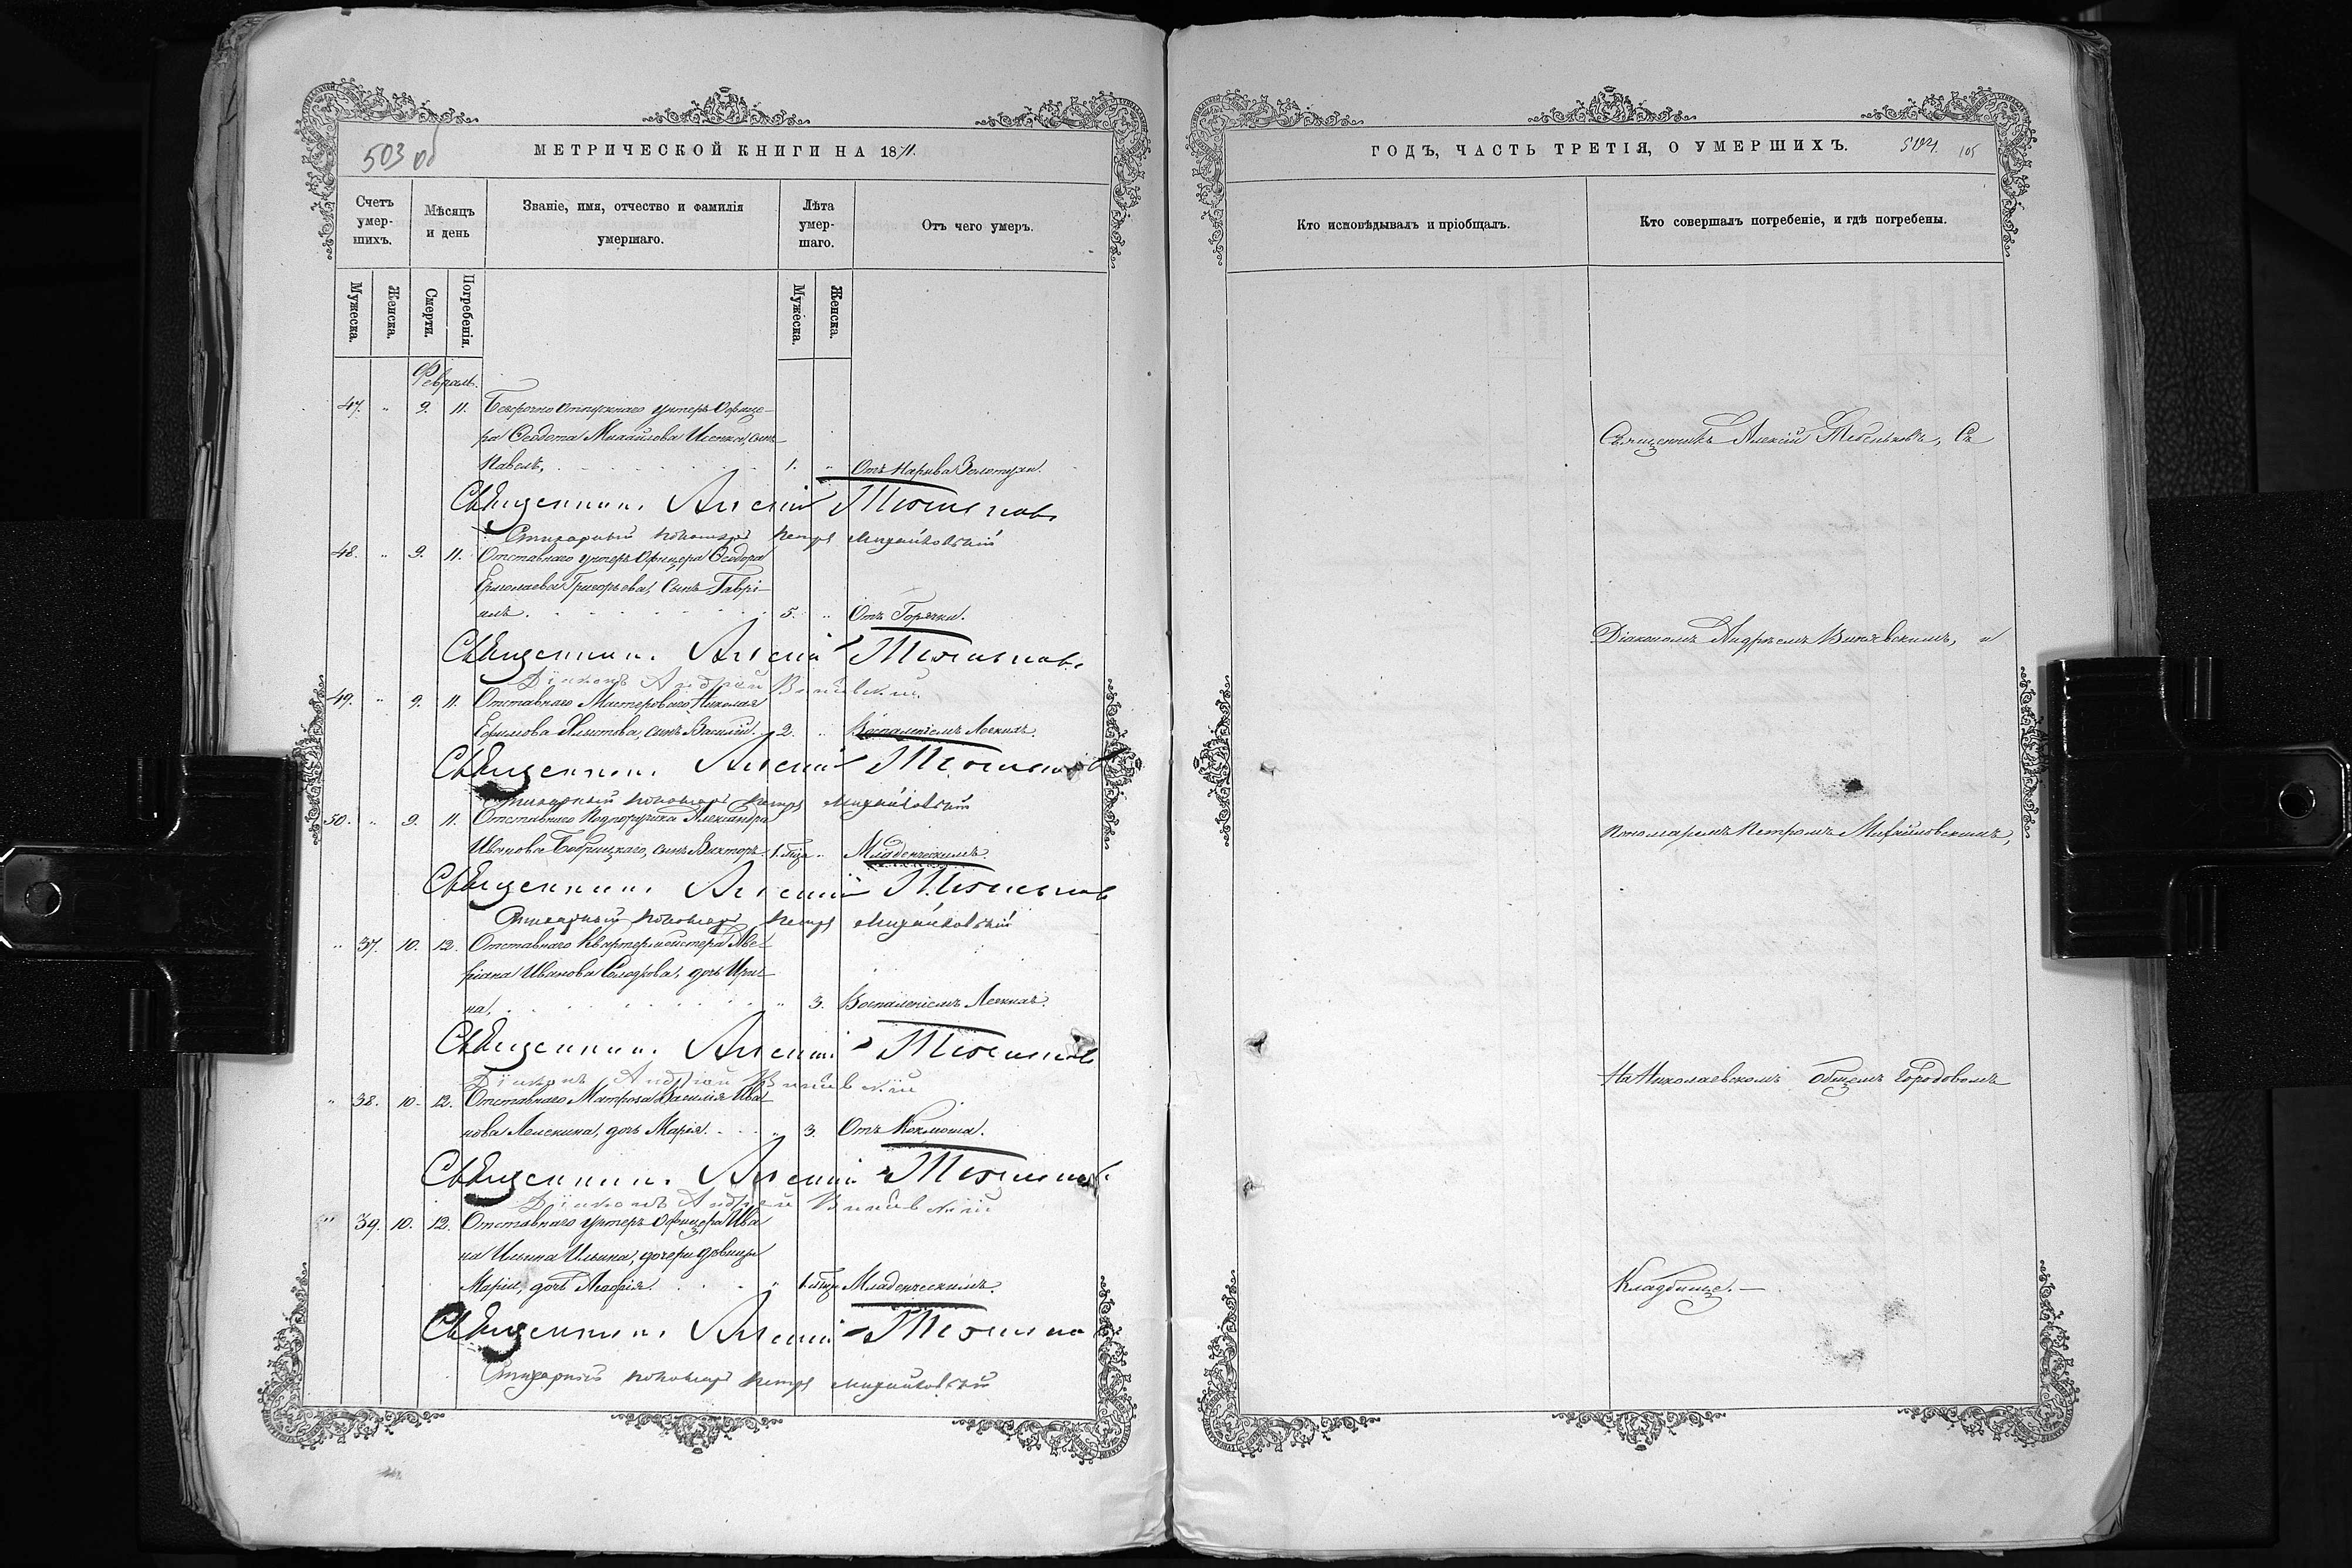 503 об
МЕТРИЧЕСКОЙ КНИГИ НА 1871.
Счетъ умер-шихъ.
Мѣсяцъ и день
Званіе, имя, отчество и фамилія умершаго.
Лѣта умер-шаго.
Отъ чего умеръ.
Мужеска.
Женска.
Смерти.
Погребенія.
Мужеска.
Женска.
Февраль.
47. " 9. 11. Безсрочно отпускнаго унтеръ Офице-
ра Ѳеодота Михайлова сынъ
Павелъ, 1. " Отъ Нарыва Золотухи.
Священникъ Алексій
Стихарный пономарь Петръ Михайловскій
48. " 9. 11. Отставнаго унтеръ Офицера Ѳеодора
Ермолаева Григорьева, сынъ Гаврі-
илъ. 5. " Отъ Горячки.
Священникъ Алексій
Діаконъ Андрей
49. " 9. 11. Отставнаго Мастероваго Николая
Ефимова сынъ Василій. 2. " Воспаленіемъ Легкихъ.
Священникъ Алексій
Стихарный пономарь Петръ Михайловскій
50. " 9. 11. Отставнаго Подпоручика Александра
Иванова Бобрицкаго, сынъ Викторъ. 1. мца " Младенческимъ.
Священникъ Алексій
Стихарный пономарь Петръ Михайловскій
" 37. 10. 12. Отставнаго Квартермейстера Аве-
ріана Иванова дочь Ири-
на, " 3. Воспаленіемъ Легкихъ.
Священникъ Алексій
Діаконъ Андрей
" 38. 10. 12. Отставнаго Матроза Василія Ива-
нова дочь Марія. " 3. Отъ Коклюша.
Священникъ Алексій
Діаконъ Андрей
" 39. 10. 12. Отставнаго унтеръ Офицера Ива-
на Ильина Ильина, дочери дѣвицы
Маріи, дочь Агафія. " 1. мца Младенческимъ.
Священникъ Алексій
Стихарный пономарь Петръ Михайловскій
ГОДЪ, ЧАСТЬ ТРЕТІЯ, О УМЕРШИХЪ.
504. 105
Кто исповѣдывалъ и пріобщалъ.
Кто совершалъ погребеніе, и гдѣ погребены.
Священникъ Алексій Съ
Діакономъ Андреемъ и
пономаремъ Петромъ Михайловскимъ,
На Николаевскомъ общемъ городовомъ
Кладбище.—